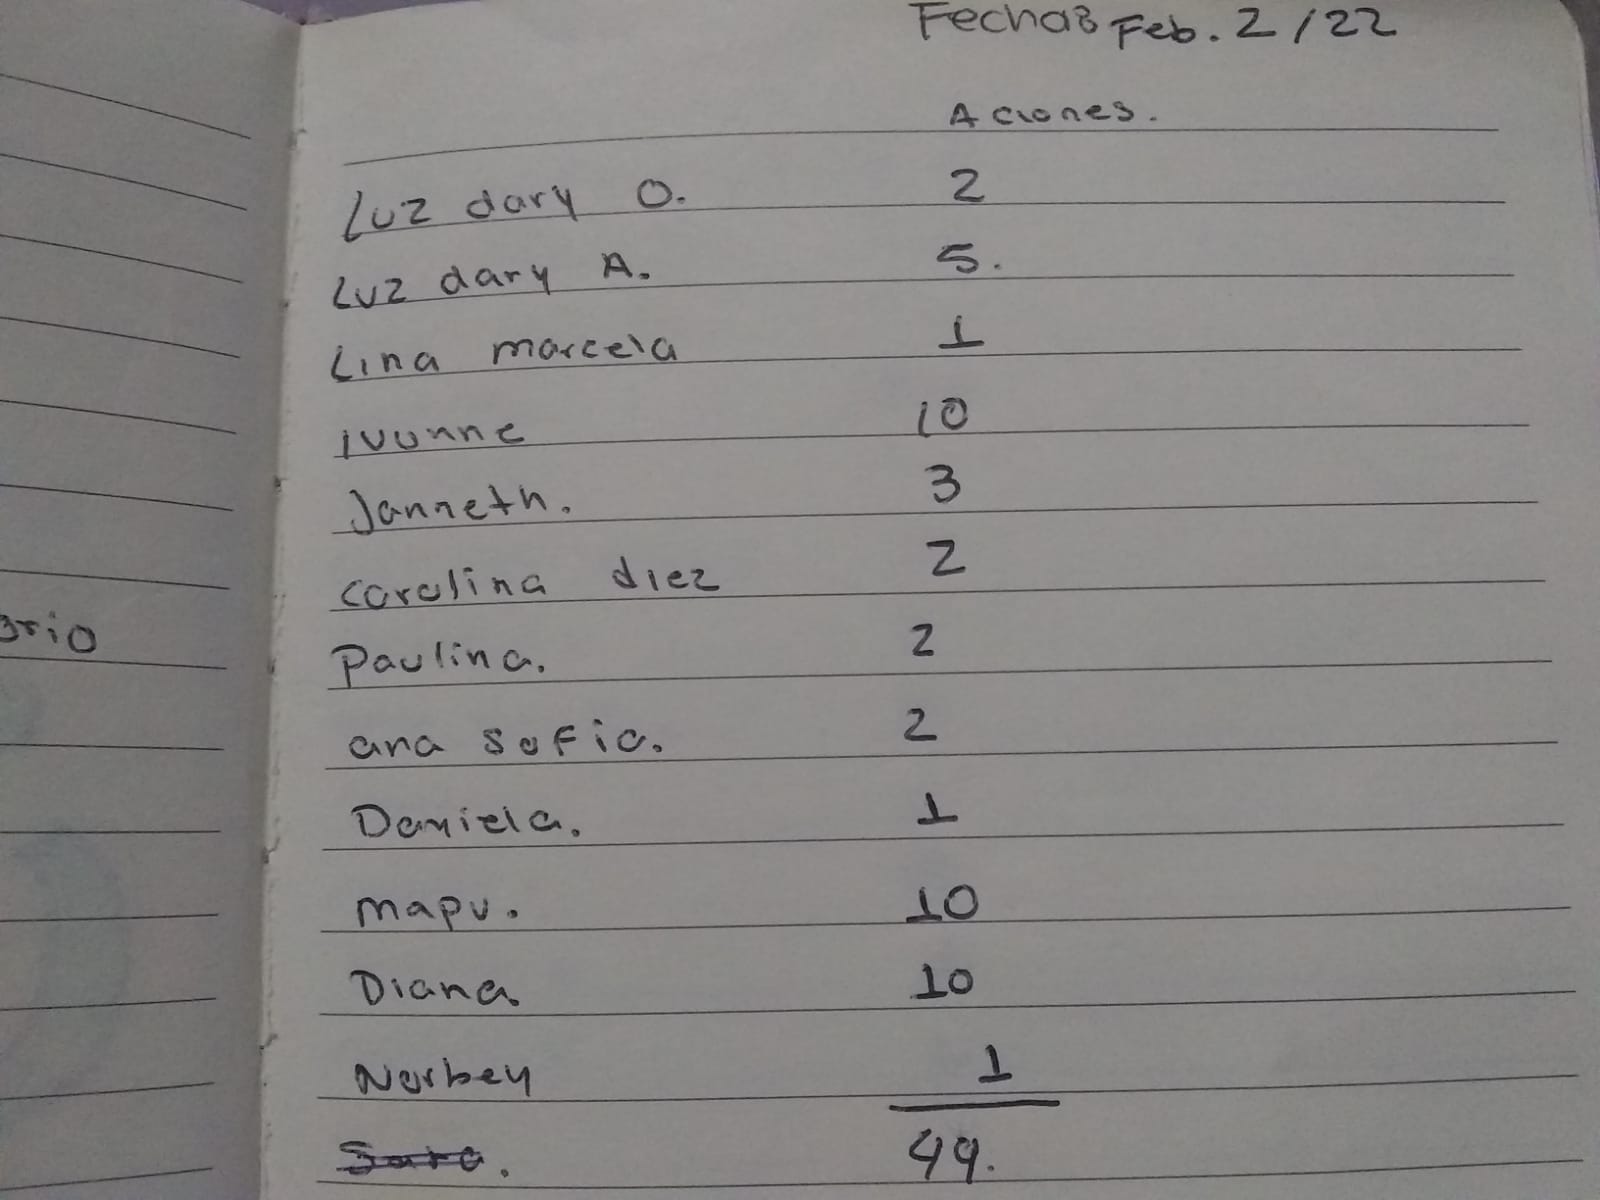 Fecha: Feb. 2/22
Aciones.
Luz dary O. 2
Luz dary A. 5.
Lina marcela 1
ivonne 10
Janneth. 3
carolina diez 2
Paulina. 2
ana sofia. 2
Daniela. 1
mapu. 10
Diana. 10
Norbey 1
Sara. 49.